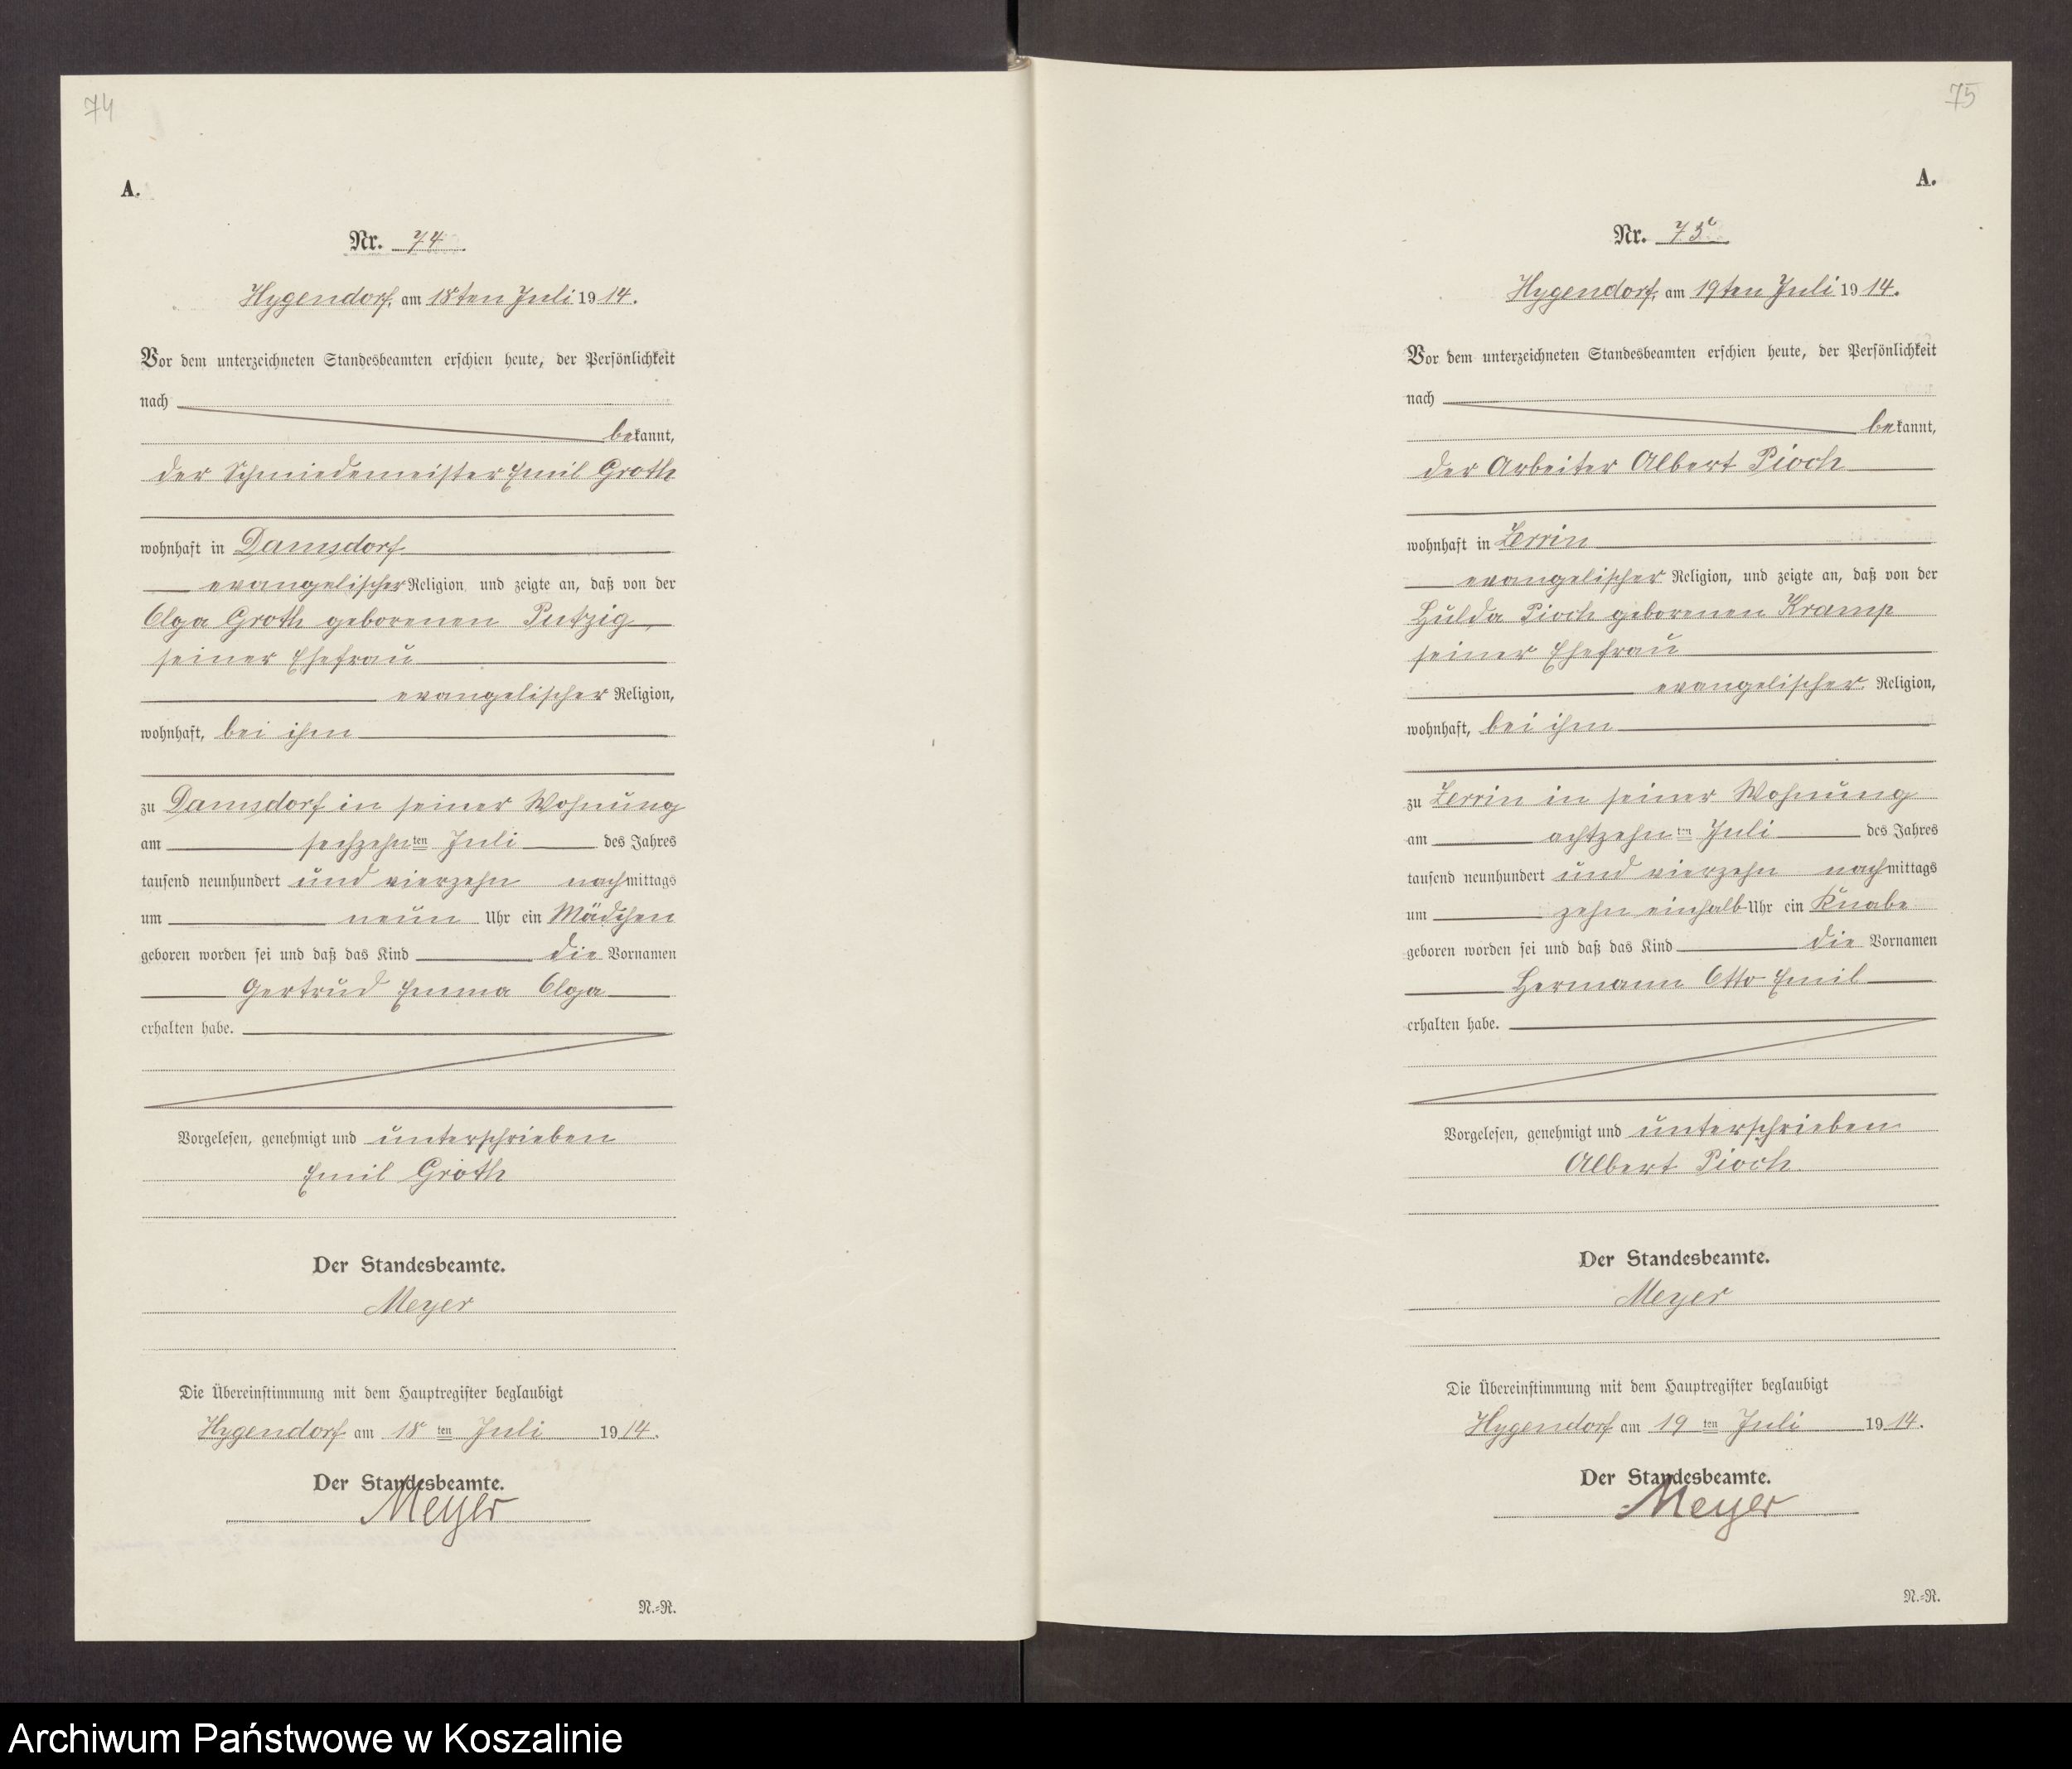 74
A.
Nr. 74
Hygendorf, am 18ten Juli 1914.
Vor dem unterzeichneten Standesbeamten erschien heute, der Persönlichkeit
nach
bekannt,
der Schmiedemeister Emil Groth
wohnhaft in Damsdorf
evangelischer Religion, und zeigte an, daß von der
Olga Groth geborenen Putzig,
seiner Ehefrau
evangelischer Religion,
wohnhaft, bei ihm
zu Damsdorf in seiner Wohnung
am sechzehnten Juli des Jahres
tausend neunhundert und vierzehn nachmittags
um neun Uhr ein Mädchen
geboren worden sei und daß das Kind die Vornamen
Gertrud Emma Olga
erhalten habe.
Vorgelesen, genehmigt und unterschrieben
Emil Groth
Der Standesbeamte.
Meyer
Die Übereinstimmung mit dem Hauptregister beglaubigt
Hygendorf am 18ten Juli 1914.
Der Standesbeamte.
Meyer
N.=R.
75
A.
Nr. 75
Hygendorf, am 19ten Juli 1914.
Vor dem unterzeichneten Standesbeamten erschien heute, der Persönlichkeit
nach
bekannt,
der Arbeiter Albert Pioch
wohnhaft in Zerrin
evangelischer Religion, und zeigte an, daß von der
Hulda Pioch geborenen Kramp
seiner Ehefrau
evangelischer Religion,
wohnhaft, bei ihm
zu Zerrin in seiner Wohnung
am achtzehnten Juli des Jahres
tausend neunhundert und vierzehn nachmittags
um zehn einhalb Uhr ein Knabe
geboren worden sei und daß das Kind die Vornamen
Hermann Otto Emil
erhalten habe.
Vorgelesen, genehmigt und unterschrieben
Albert Pioch
Der Standesbeamte.
Meyer
Die Übereinstimmung mit dem Hauptregister beglaubigt
Hygendorf am 19ten Juli 1914.
Der Standesbeamte.
Meyer
N.=R.
Archiwum Państwowe w Koszalinie